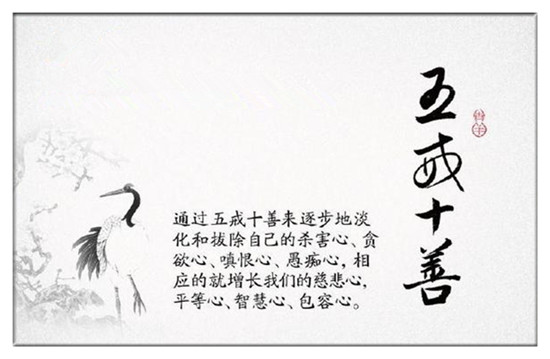 五戒十善
通过五戒十善来逐步地淡
化和拔除自己的杀害心、贪
欲心、嗔恨心、愚痴心，相
应的就增长我们的慈悲心，
平等心、智慧心、包容心。